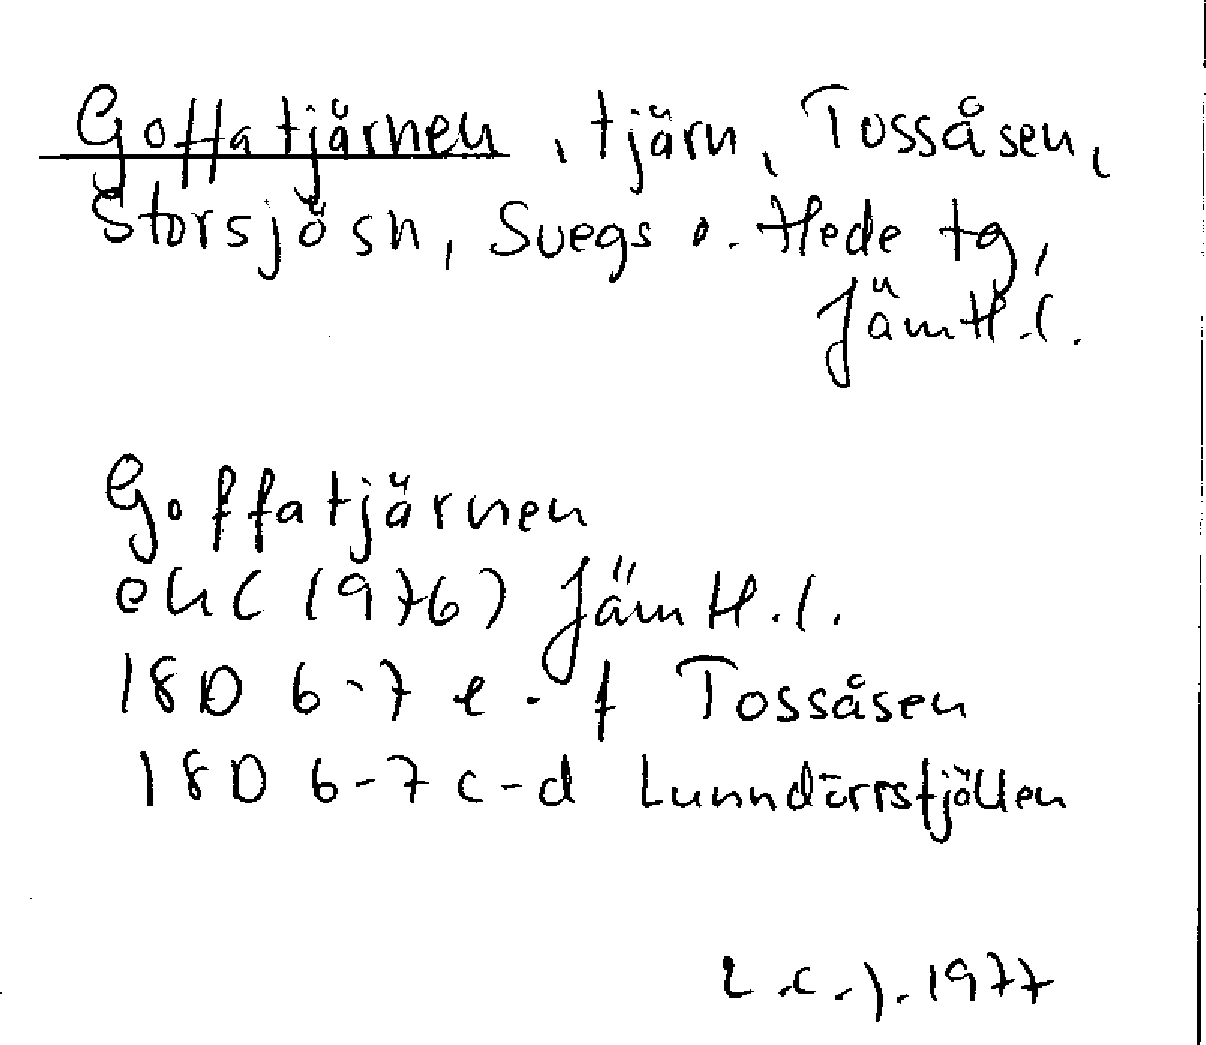 Goffatjärnen, tjärn, Tossåsen,
Storsjö sn, Svegs o. Hede tg,
Jämtl.l.
Goffatjärnen
ek (1976) Jämtl.l.
18D 6-7 e-f Tossåsen
18D 6-7 c-d Lunndörrsfjällen
1977